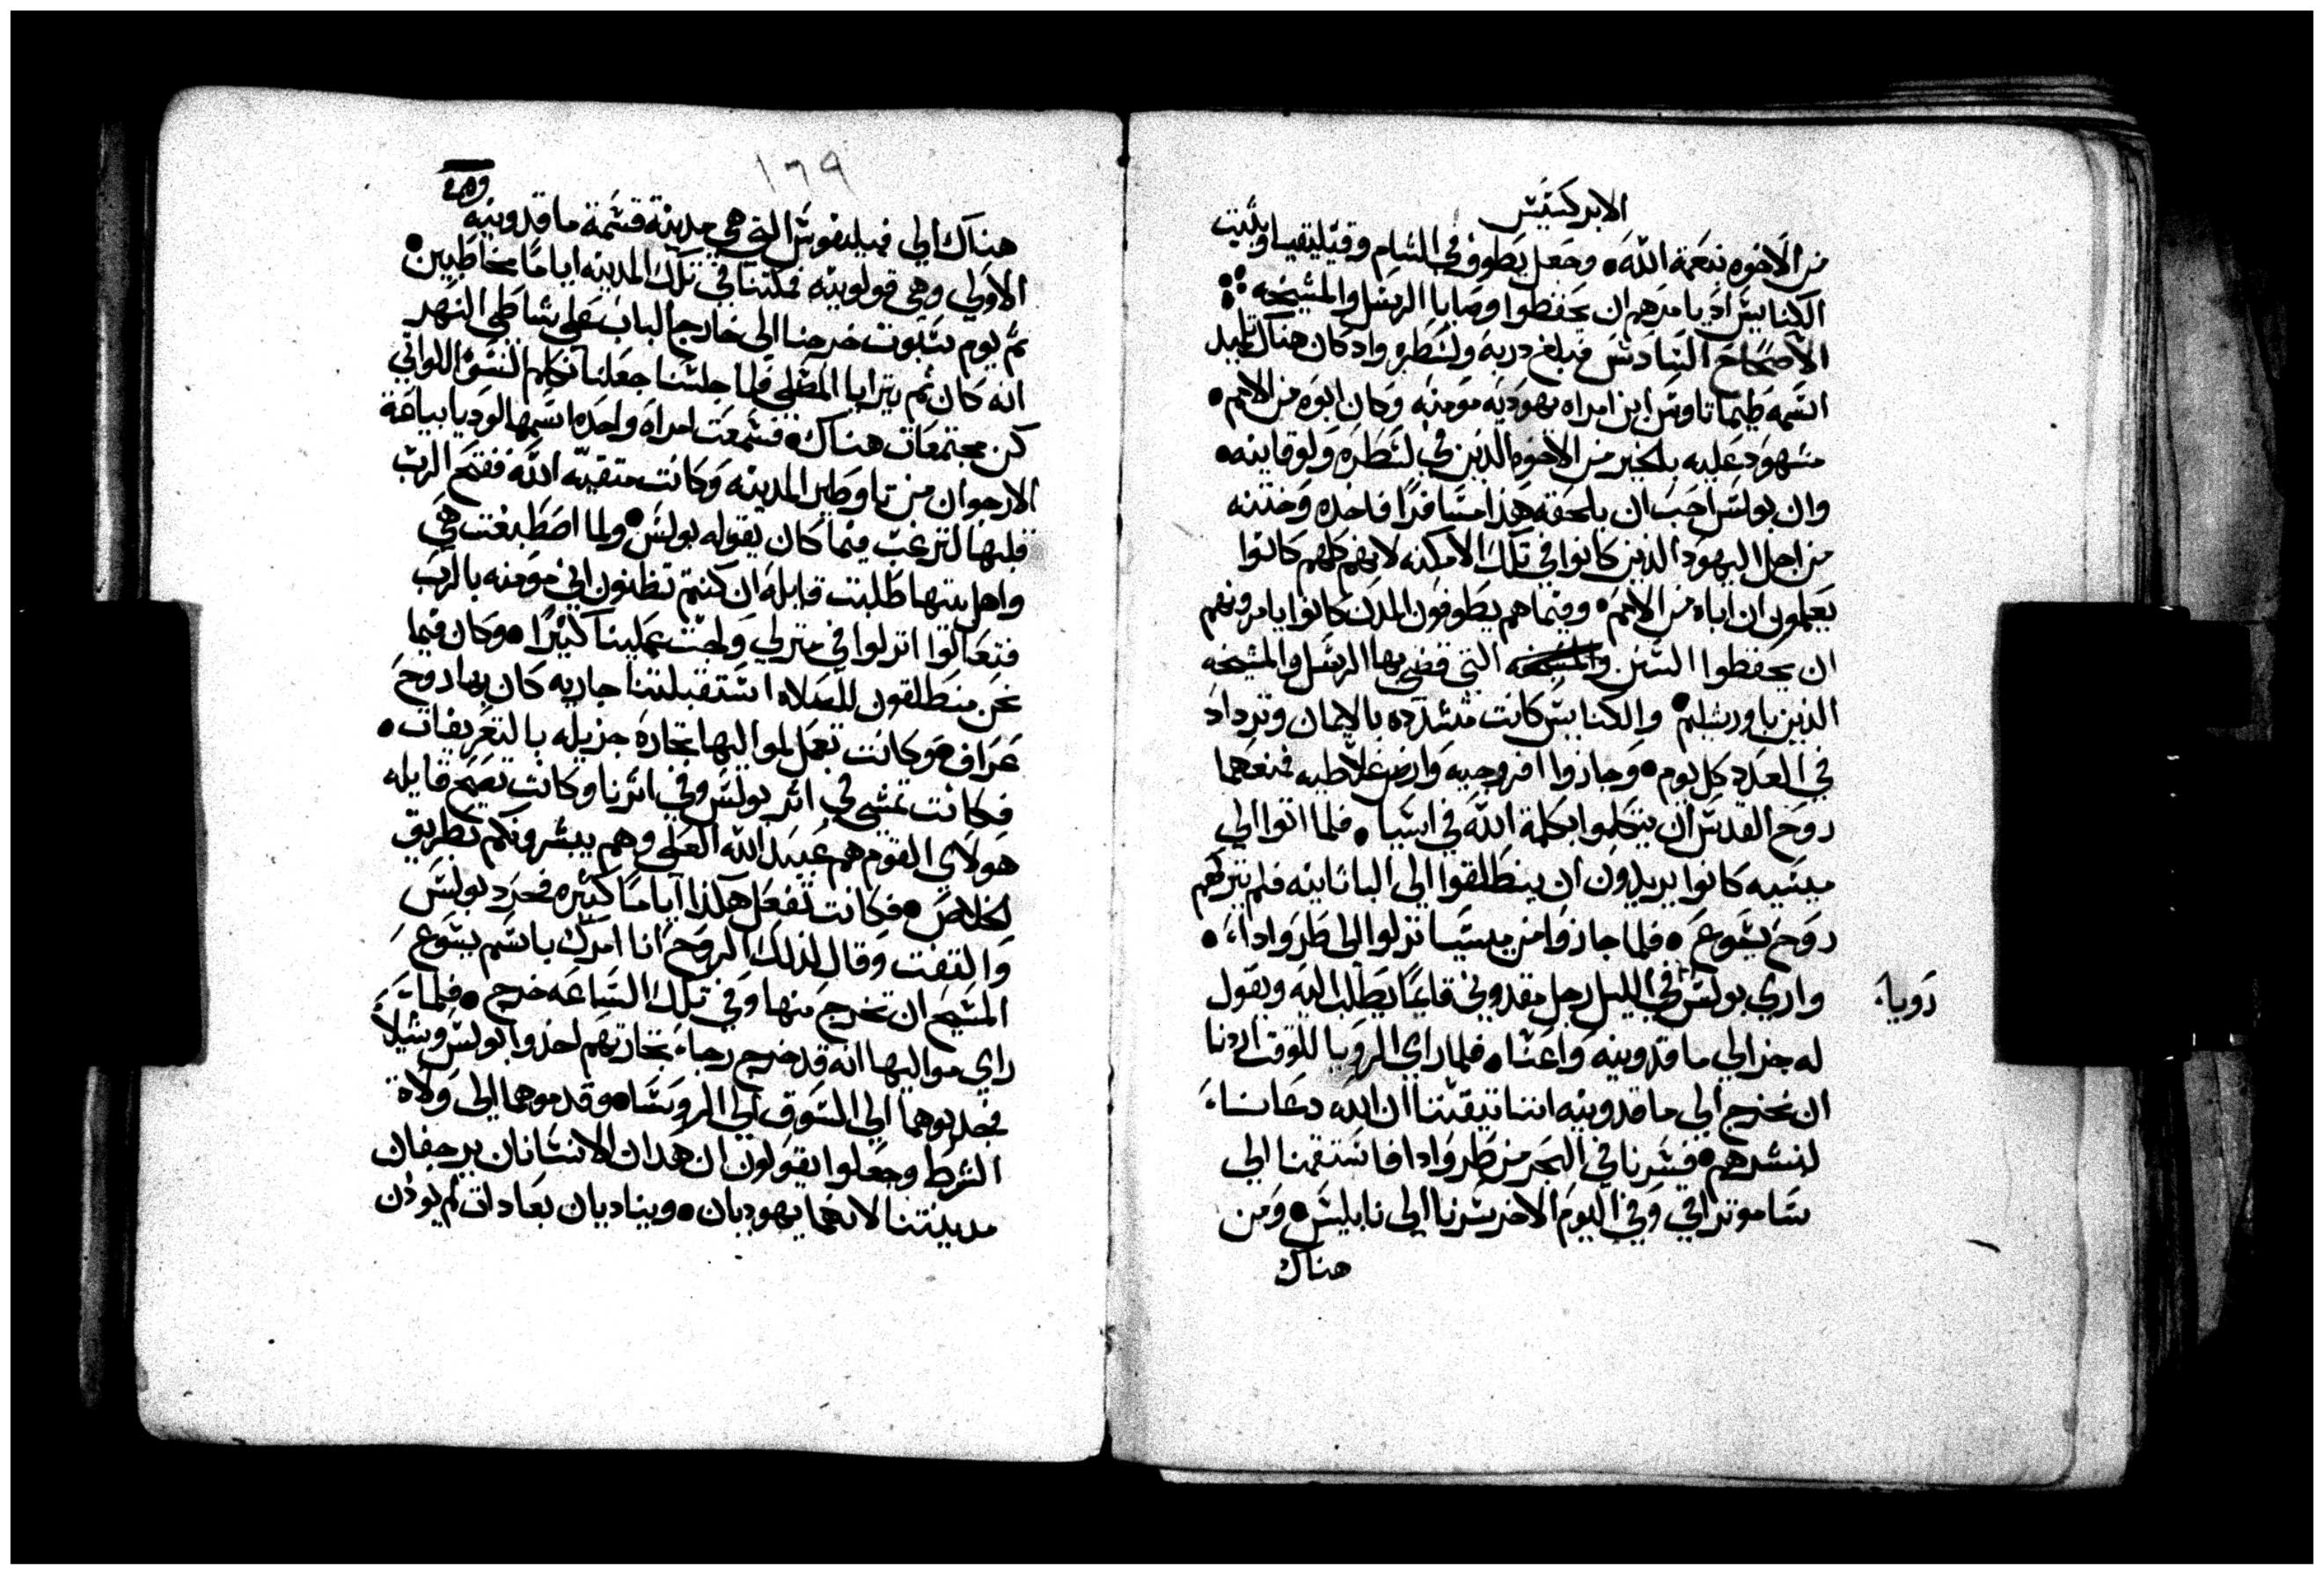 الابركسيس
من الاخوه بنعمة الله۰ وجعل يطوف في الشام وقيليقيا ويثبت
الكنايس اد يامرهم ان يحفظوا وصايا الرسل والمشيخه
الاصحاح السادس فبلغ دربه ولسطره واد كان هناك تلميد
اسمه طيماتاوس ابن امراه يهوديه مومنه وكان ابوه من الامم۰
مشهود عليه بالخير من الاخوه الذين في لسطره ولوقانيه۰
وان بولس احب ان يلحقه هذا مسافرًا فاخده وختنه
من اجل اليهود الذين كانوا في تلك الامكنه لانهم كلهم كانوا
يعلمون ان اباه من الامم۰ وفيما هم يطوفون المدن كانوا يامرونهم
ان يحفظوا السنن التي قضي بها الرسل والمشيخه
الذين باورشليم۰ والكنايس كانت متشدده بالايمان وتزداد
في العدد كل يوم۰ وجازوا افروجيه وارض غلاطيه فمنعهما
روح القدس ان يتكلموا بكلمة الله في اسيا۰ فلما اتوا الي
ميسيه كانوا يريدون ان ينطلقوا الي الباثانيه فلم يتركهم
روح يسوع۰ فلما جازوا من ميسيا نزلوا الي طرواداا۰
واري بولس في الليل رجل مقدوني قايمًا يطلب اليه ويقول
رويا
له جز الي ماقدونيه واعنا۰ فلما راي الرويا للوقت اردنا
ان نخرج الي ماقدونيه اننا تيقننا ان الله دعانا
لنبشرهم۰ فسرنا في البحر من طروادا فاستقمنا الي
ساموتراقي وفي اليوم الاخر سرنا الي نابليس۰ ومن
هناك
١٦٩
هناك الي فيليفوس التي هي مدينة قسمة ماقدونيه
الاولي وهي قولونيه فمكثنا في تلك المدينه اياما مخاطبين۰
ثم يوم سبوت خرجنا الي خارج الباب علي شاطي النهر
انه كان ثم يترايا المصلي فلما جلسنا جعلنا نكلم النسوه اللواتي
كن مجتمعات هناك۰ فسمعت امراه واحده اسمها لوديا بياعة
الارجوان من تاوطير المدينه وكانت متقيه الله ففتح الرب
قلبها لترغب فيما كان يقوله بولس۰ ولما اصطبغت هي
واهل بيتها طلبت قايله ان كنتم تظنون اني مومنه بالرب
فتعالوا انزلوا في منزلي ولجت علينا كثيرًا۰ وكان فيما
نحن منطلقون للصلاه استقبلتنا جاريه كان بها روح
عراف۰ وكانت تعمل لمواليها تجاره جزيله بالتعريفات۰
فكانت تمشي في اثر بولس وفي اثرنا وكانت تصيح قايله
هولاي القوم هم عبيد الله العلي وهم يبشرونكم بطريق
الخلاص۰ فكانت تفعل هكذا اياما كثيره فحرد بولس
والتفت وقال لذلك الروح انا امرك باسم يسوع
المسيح ان تخرج منها وفي تلك الساعه خرج۰ فلما
راي مواليها انه قد خرج رجاء تجارتهم اخدوا بولس وشيلا
فجدبوهما الي السوق الي الروسا۰ وقدموهما الي ولاة
الشرط وجعلوا يقولون ان هدان الانسانان يرجفان
مدينتنا لانهما يهوديان۰ ويناديان بعادات لم يودن